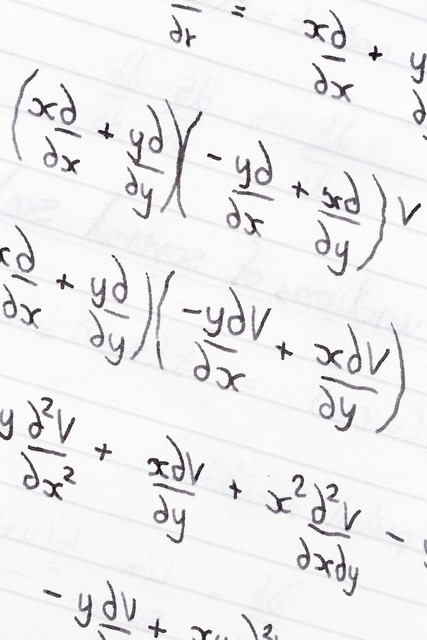 ∂r = x∂/∂x + y
(x∂/∂x + y∂/∂y)(-y∂/∂x + x∂/∂y) V
x∂/∂x + y∂/∂y)(-y∂V/∂x + x∂V/∂y)
y ∂²V/∂x² + x∂V/∂y + x² ∂²V/∂x∂y -
- y∂V + xy ∂²